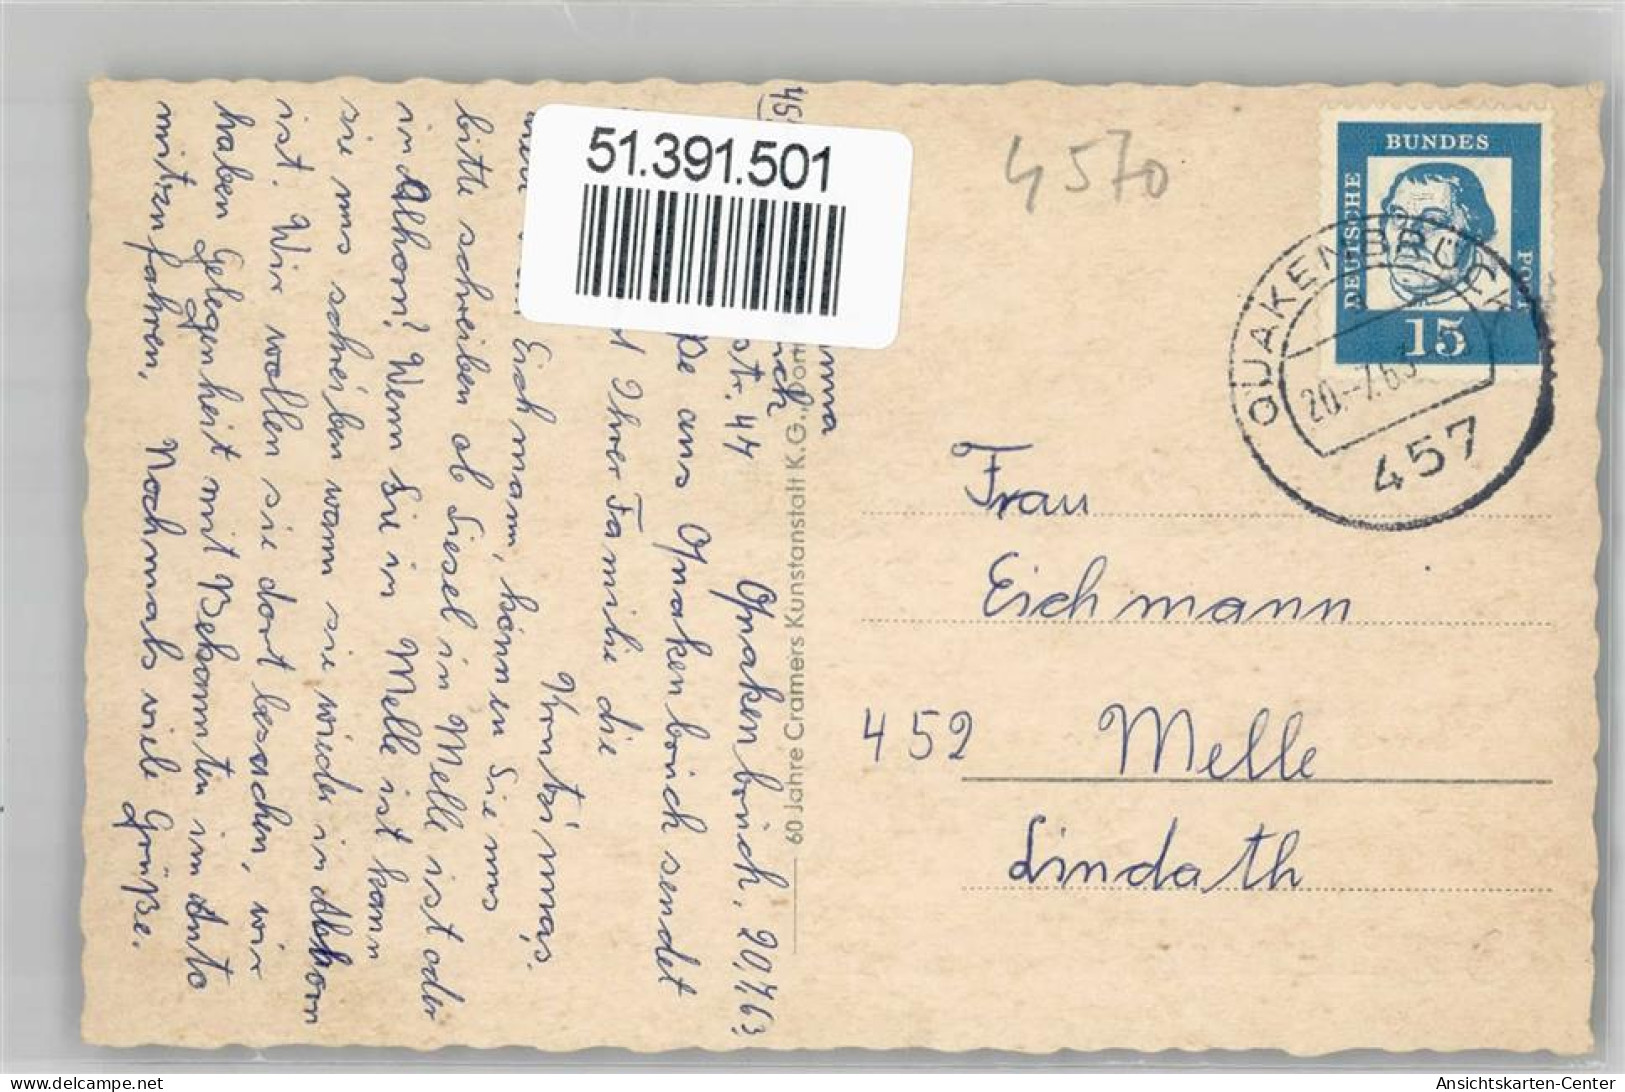 51.391.501
4570
DEUTSCHE
BUNDES
POST
15
QUAKENBRÜCK
20.-7.63
457
Frau
Eichmann
452 Melle
Lindath
60 Jahre Cramers Kunstanstalt K.G., Dortm
45
str. 44
Quakenbrück, 20.7.63
ße aus Quakenbrück sendet
Ihrer Familie die
Eichmann, können Sie uns
bitte schreiben ob Liesel in Melle ist oder
in Alhorn? Wenn Sie in Melle ist kann
sie uns schreiben wann sie wieder in Alhorn
ist. Wir wollen sie dort besuchen, wir
haben Gelegenheit mit Bekannten im Auto
mitzufahren. Nochmals viele Grüße.
delcampe.net
Ansichtskarten-Center